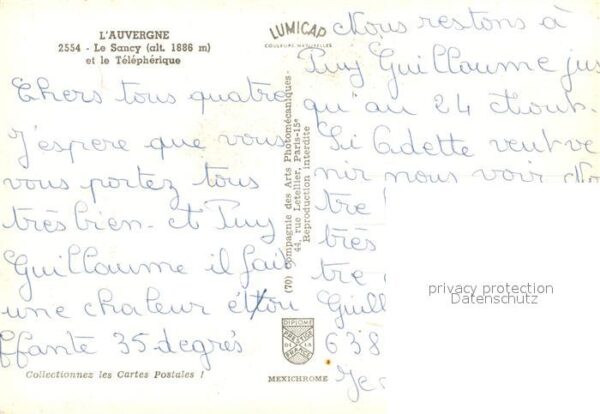 L'AUVERGNE
2554 - Le Sancy (alt. 1886 m)
et le Téléphérique
Chers tous quatre
J'espere que vous
vous portez tous
très bien. et Puy
Guillaume il fait
une chaleur étou
ffante 35 degrés
Collectionnez les Cartes Postales !
LUMICAP
COULEURS NATURELLES
(70) Compagnie des Arts Photomécaniques-
44, rue Letellier, Paris-15e
Reproduction interdite
DIPLOME
PRESTIGE
DE LA
FRANCE
MEXICHROME
Nous restons à
Puy Guillaume jus
qu'au 24 Aout.
Si Odette veut ve
nir nous voir
tre
très
tre
Guill
638
privacy protection
Datenschutz